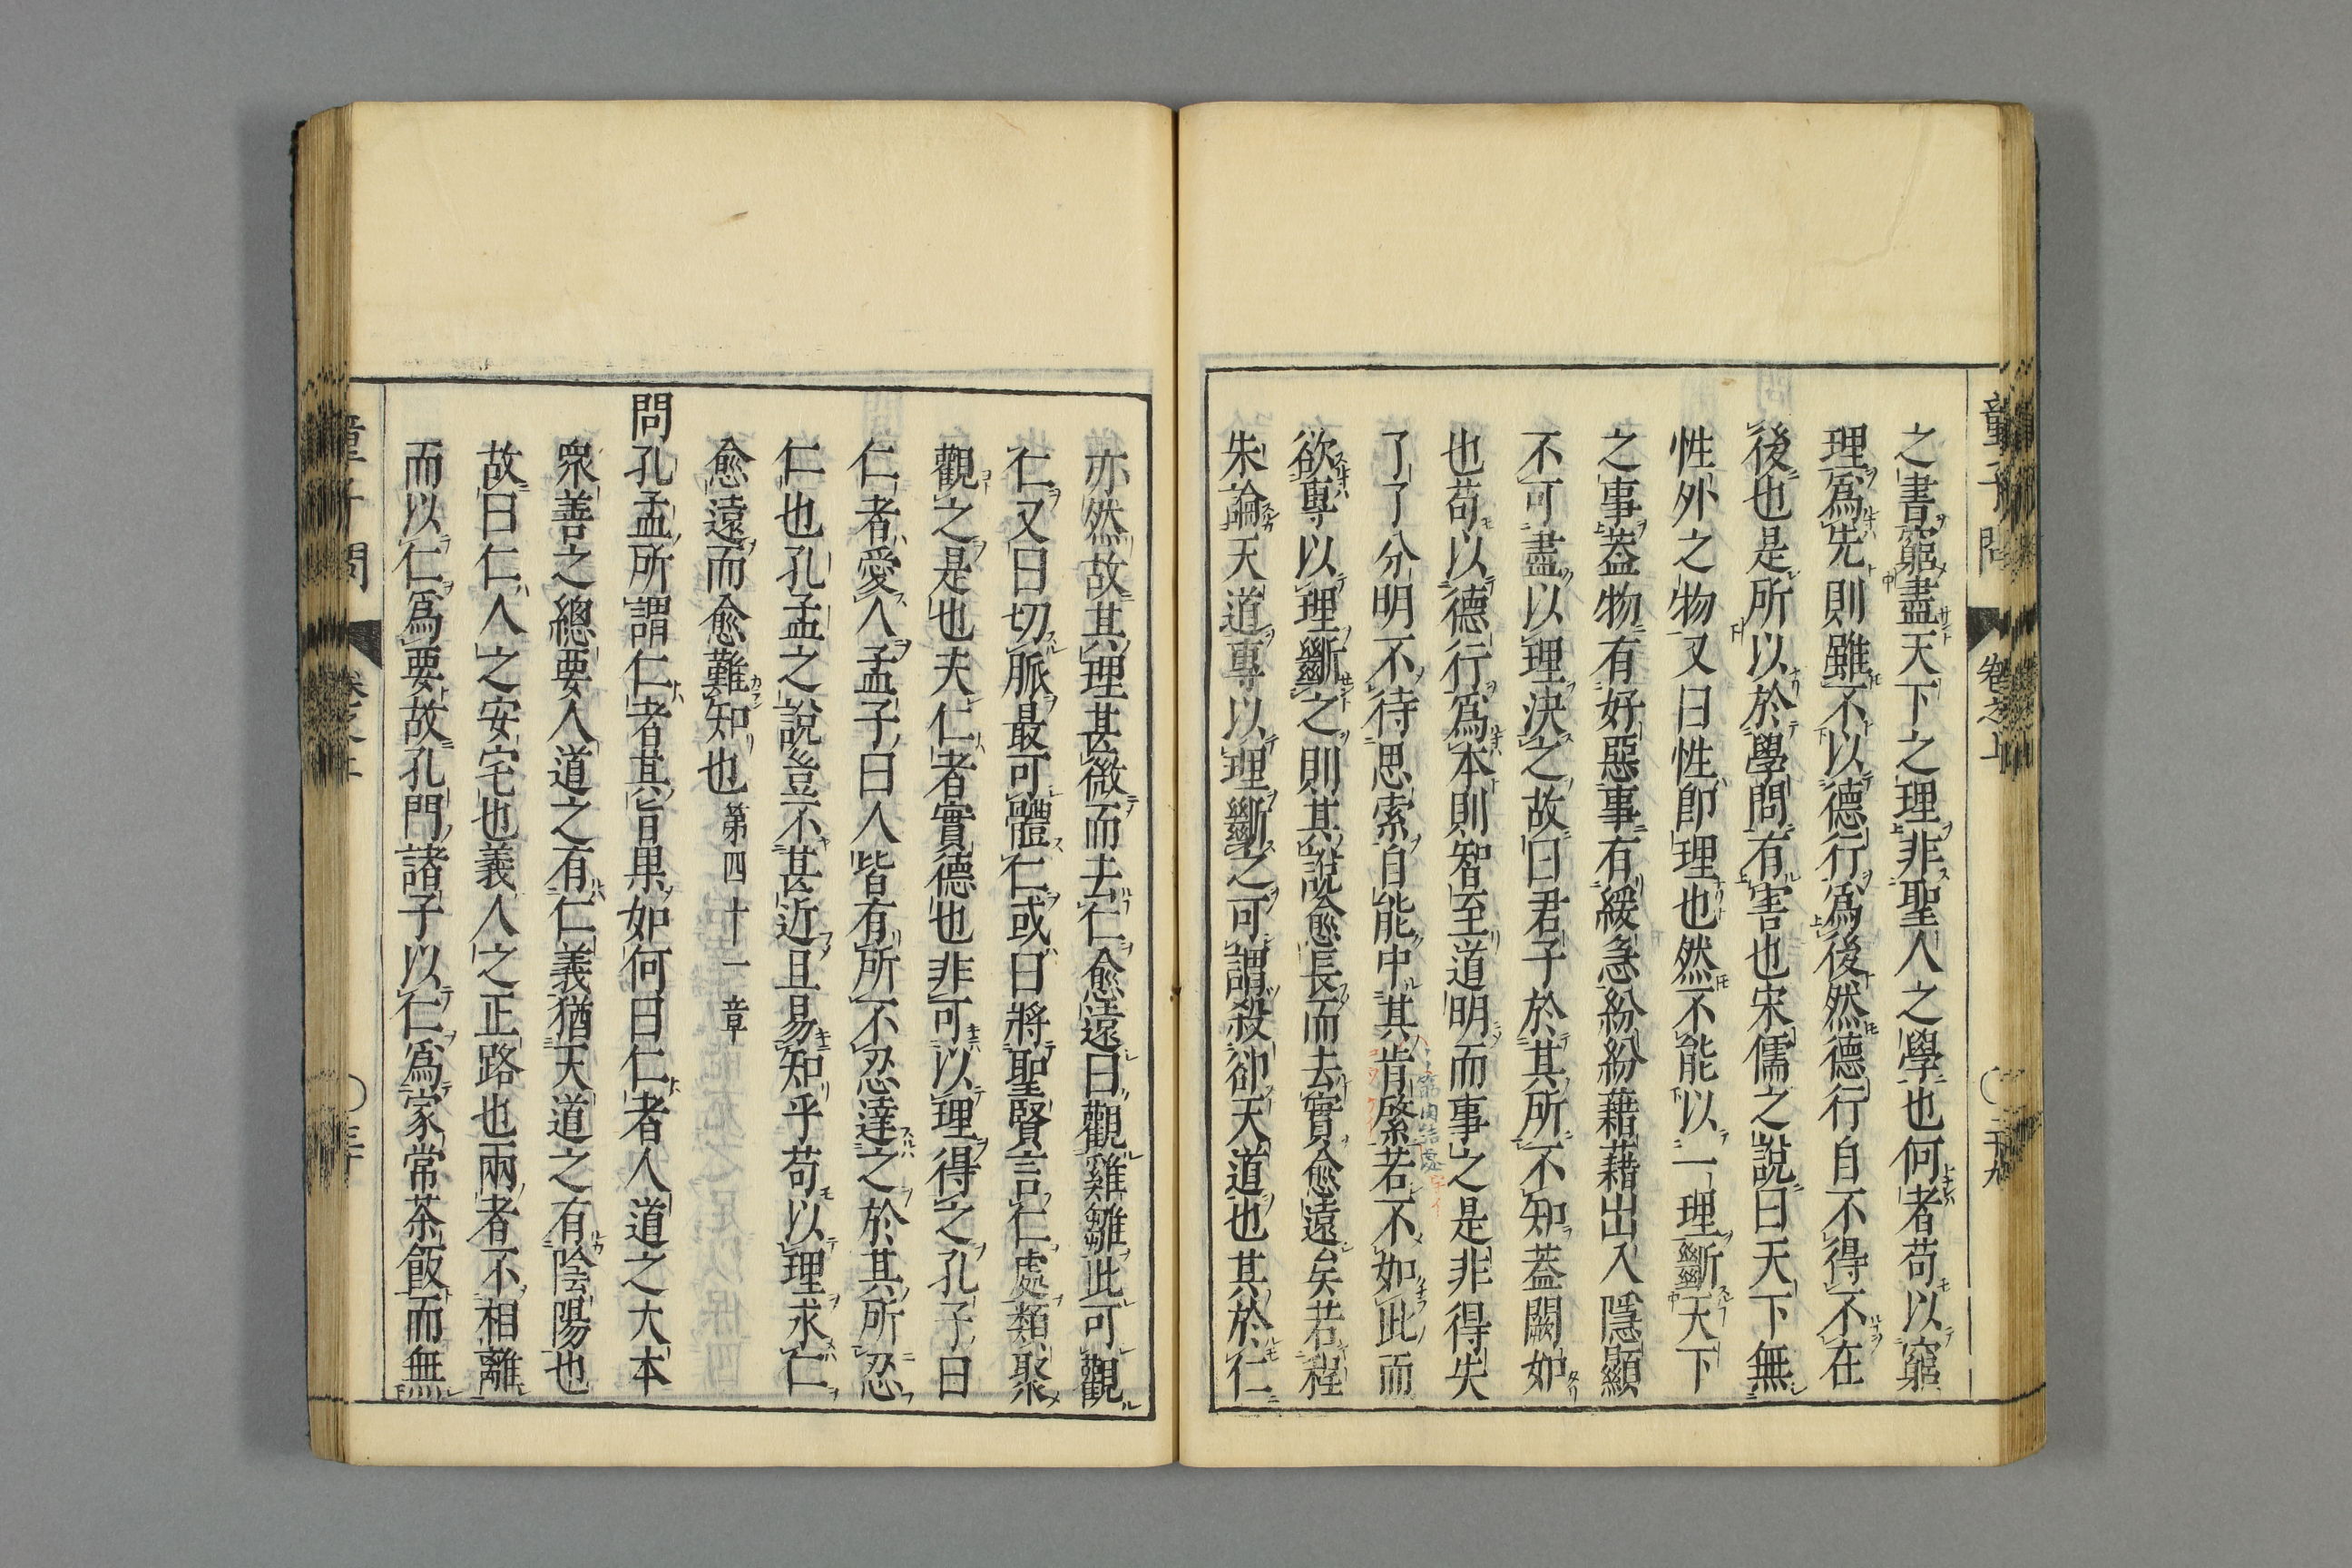 童子問 卷之上 〇二十九
之書窮盡天下之理非聖人之學也何者苟以窮
理爲先則雖不以德行爲後然德行自不得不在
後也是所以於學問有害也宋儒之說曰天下無
性外之物又曰性卽理也然不能以一理斷天下
之事蓋物有好惡事有緩急紛紛藉藉出入隱顯
不可盡以理決之故曰君子於其所不知蓋闕如
也苟以德行爲本則智至道明而事之是非得失
了了分明不待思索自能中其肯綮若不如此而
欲專以理斷之則其說愈長而去實愈遠矣若程
朱論天道專以理斷之可謂殺卻天道也其於仁
亦然故其理甚微而去仁愈遠曰觀雞雛此可觀
仁又曰切脈最可體仁或曰將聖賢言仁處類聚
觀之是也夫仁者實德也非可以理得之孔子曰
仁者愛人孟子曰人皆有所不忍達之於其所忍
仁也孔孟之說豈不甚近且易知乎苟以理求仁
愈遠而愈難知也 第四十一章
問孔孟所謂仁者其旨果如何曰仁者人道之大本
衆善之總要人道之有仁義猶天道之有陰陽也
故曰仁人之安宅也義人之正路也兩者不相離
而以仁爲要故孔門諸子以仁爲家常茶飯而無
童子問 卷之上 〇三十